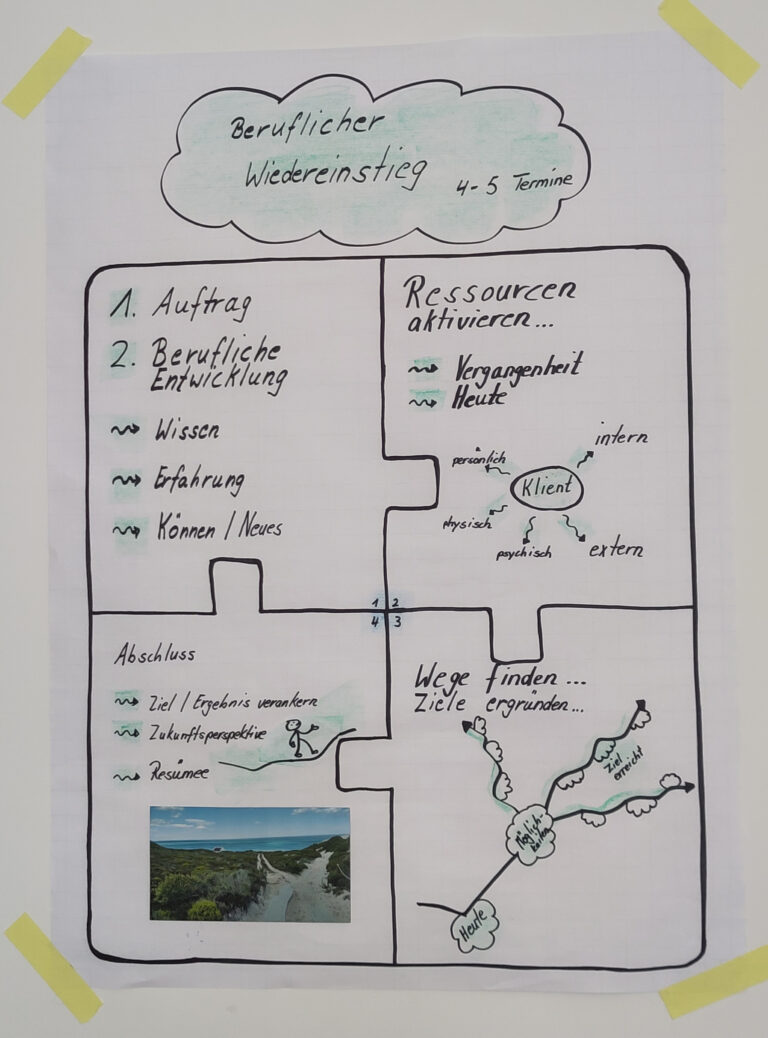 Beruflicher
Wiedereinstieg
4-5 Termine
1. Auftrag
2. Berufliche
Entwicklung
Wissen
Erfahrung
Können / Neues
Ressourcen
aktivieren...
Vergangenheit
Heute
intern
persönlich
Klient
physisch
psychisch
extern
1 2
4 3
Wege finden...
Ziele ergründen...
Ziel
erreicht
Möglich-
keiten
Heute
Abschluss
Ziel / Ergebnis verankern
Zukunftsperspektive
Resümee